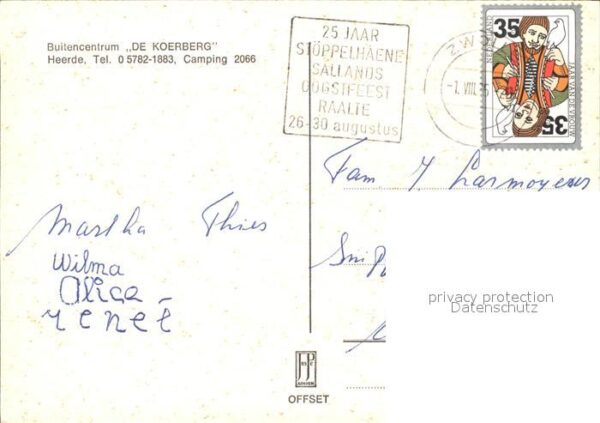 Buitencentrum „DE KOERBERG"
Heerde, Tel. 0 5782-1883, Camping 2066
25 JAAR
STÖPPELHAENE
SALLANDS
OOGSTFEEST
RAALTE
26-30 augustus
ZW
-7. VIII. 75
35
35
Fam Y. Larmoyeur
Martha Thies
Wilma
Olga
René
privacy protection
Datenschutz
OFFSET